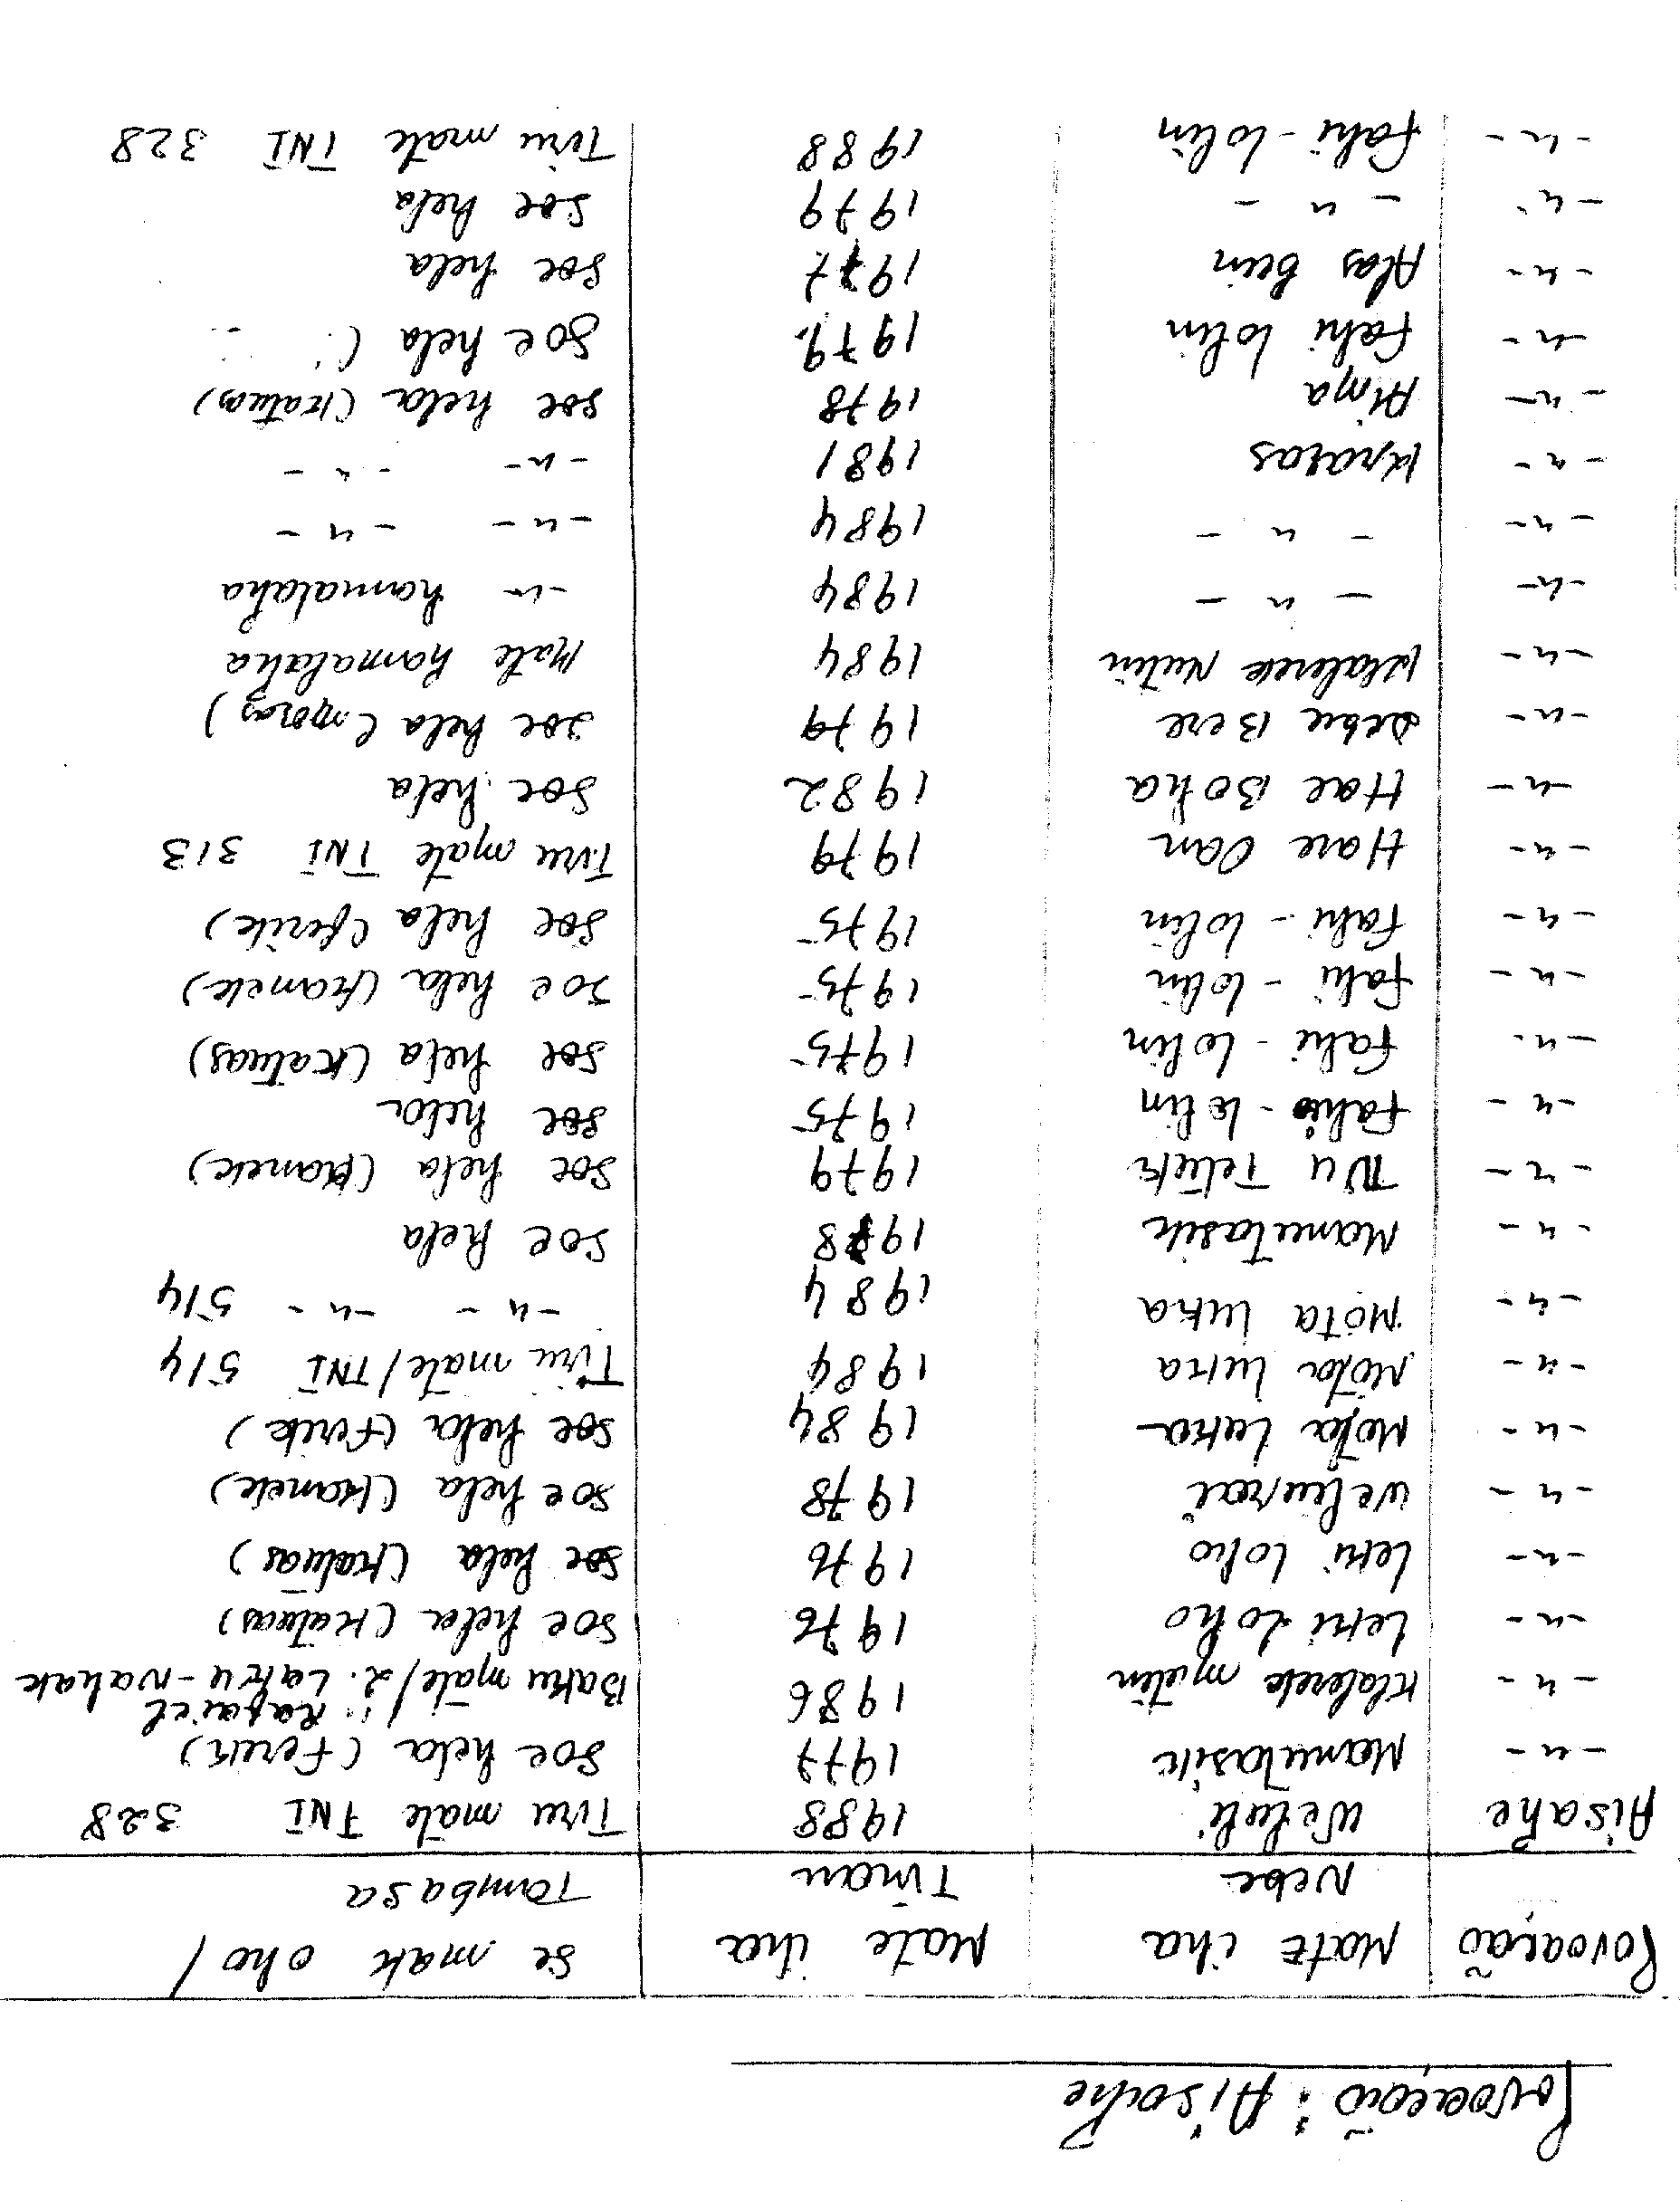 Povoação: Aisahe
Povoação | Mate iha Nebe | Mate iha Tinan | Se mak oho / Tambasa
Aisahe | Weluli | 1988 | Tiru mate TNI 328
-u- | Manulasik | 1977 | Soe hela (Ferik)
-u- | Klalerek mutin | 1986 | Baku mate/i: Rafael L. Laku-nahak
-u- | Leki Loho | 1976 | Soe hela (Katuas)
-u- | Leki Loho | 1976 | Soe hela (Katuas)
-u- | | 1978 | Soe hela (Kamek)
-u- | Mota Luka | 1984 | Soe hela (Ferik)
-u- | Mota Luka | 1984 | Tiru mate/TNI 514
-u- | Mota Luka | 1984 | -u- -u- 514
-u- | Manulasik | | Soe hela
-u- | | 1979 | Soe hela (Kamek)
-u- | Fahi-lolin | 1975 | Soe hela
-u- | Fahi-lolin | 1975 | Soe hela (Katuas)
-u- | Fahi-lolin | 1975 | Soe hela (Kamek)
-u- | Fahi-lolin | 1975 | Soe hela (ferik)
-u- | Hare Oan | 1979 | Tiru mate TNI 313
-u- | Hae Boha | 1982 | Soe hela
-u- | | 1979 | Soe hela
-u- | Klalerek Mutin | 1984 | Mate hamalaha
-u- | -u- | 1984 | -u- hamalaha
-u- | -u- | 1984 | -u- -u-
-u- | Kraras | 1981 | -u- -u-
-u- | | 1978 | Soe hela (Katuas)
-u- | Fahi lolin | 1979 | Soe hela (
-u- | Alas | 1977 | Soe hela
-u- | -u- | 1979 | Soe hela
-u- | Fahi-lolin | 1988 | Tiru mate TNI 328